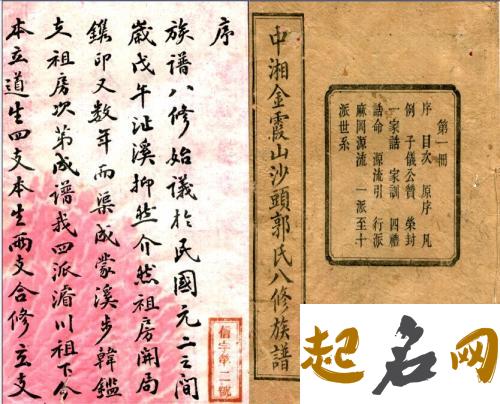 序
族譜八修始議於民國元二之間
歲戊午沚溪抑然介然祖房開局
鐫印又数年而渠成蒙溪步韓鑑
支祖房次第成譜我四派湄川祖下今
本立道生四支本生兩支合修立支
第一冊
序 目次 原序 凡
例 子儀公贊 榮封
一家話 家訓 四禮
話命 源流引 行派
麻岡源流 一派至十
派世系
中湘金霞山沙頭郭氏八修族譜
起名网